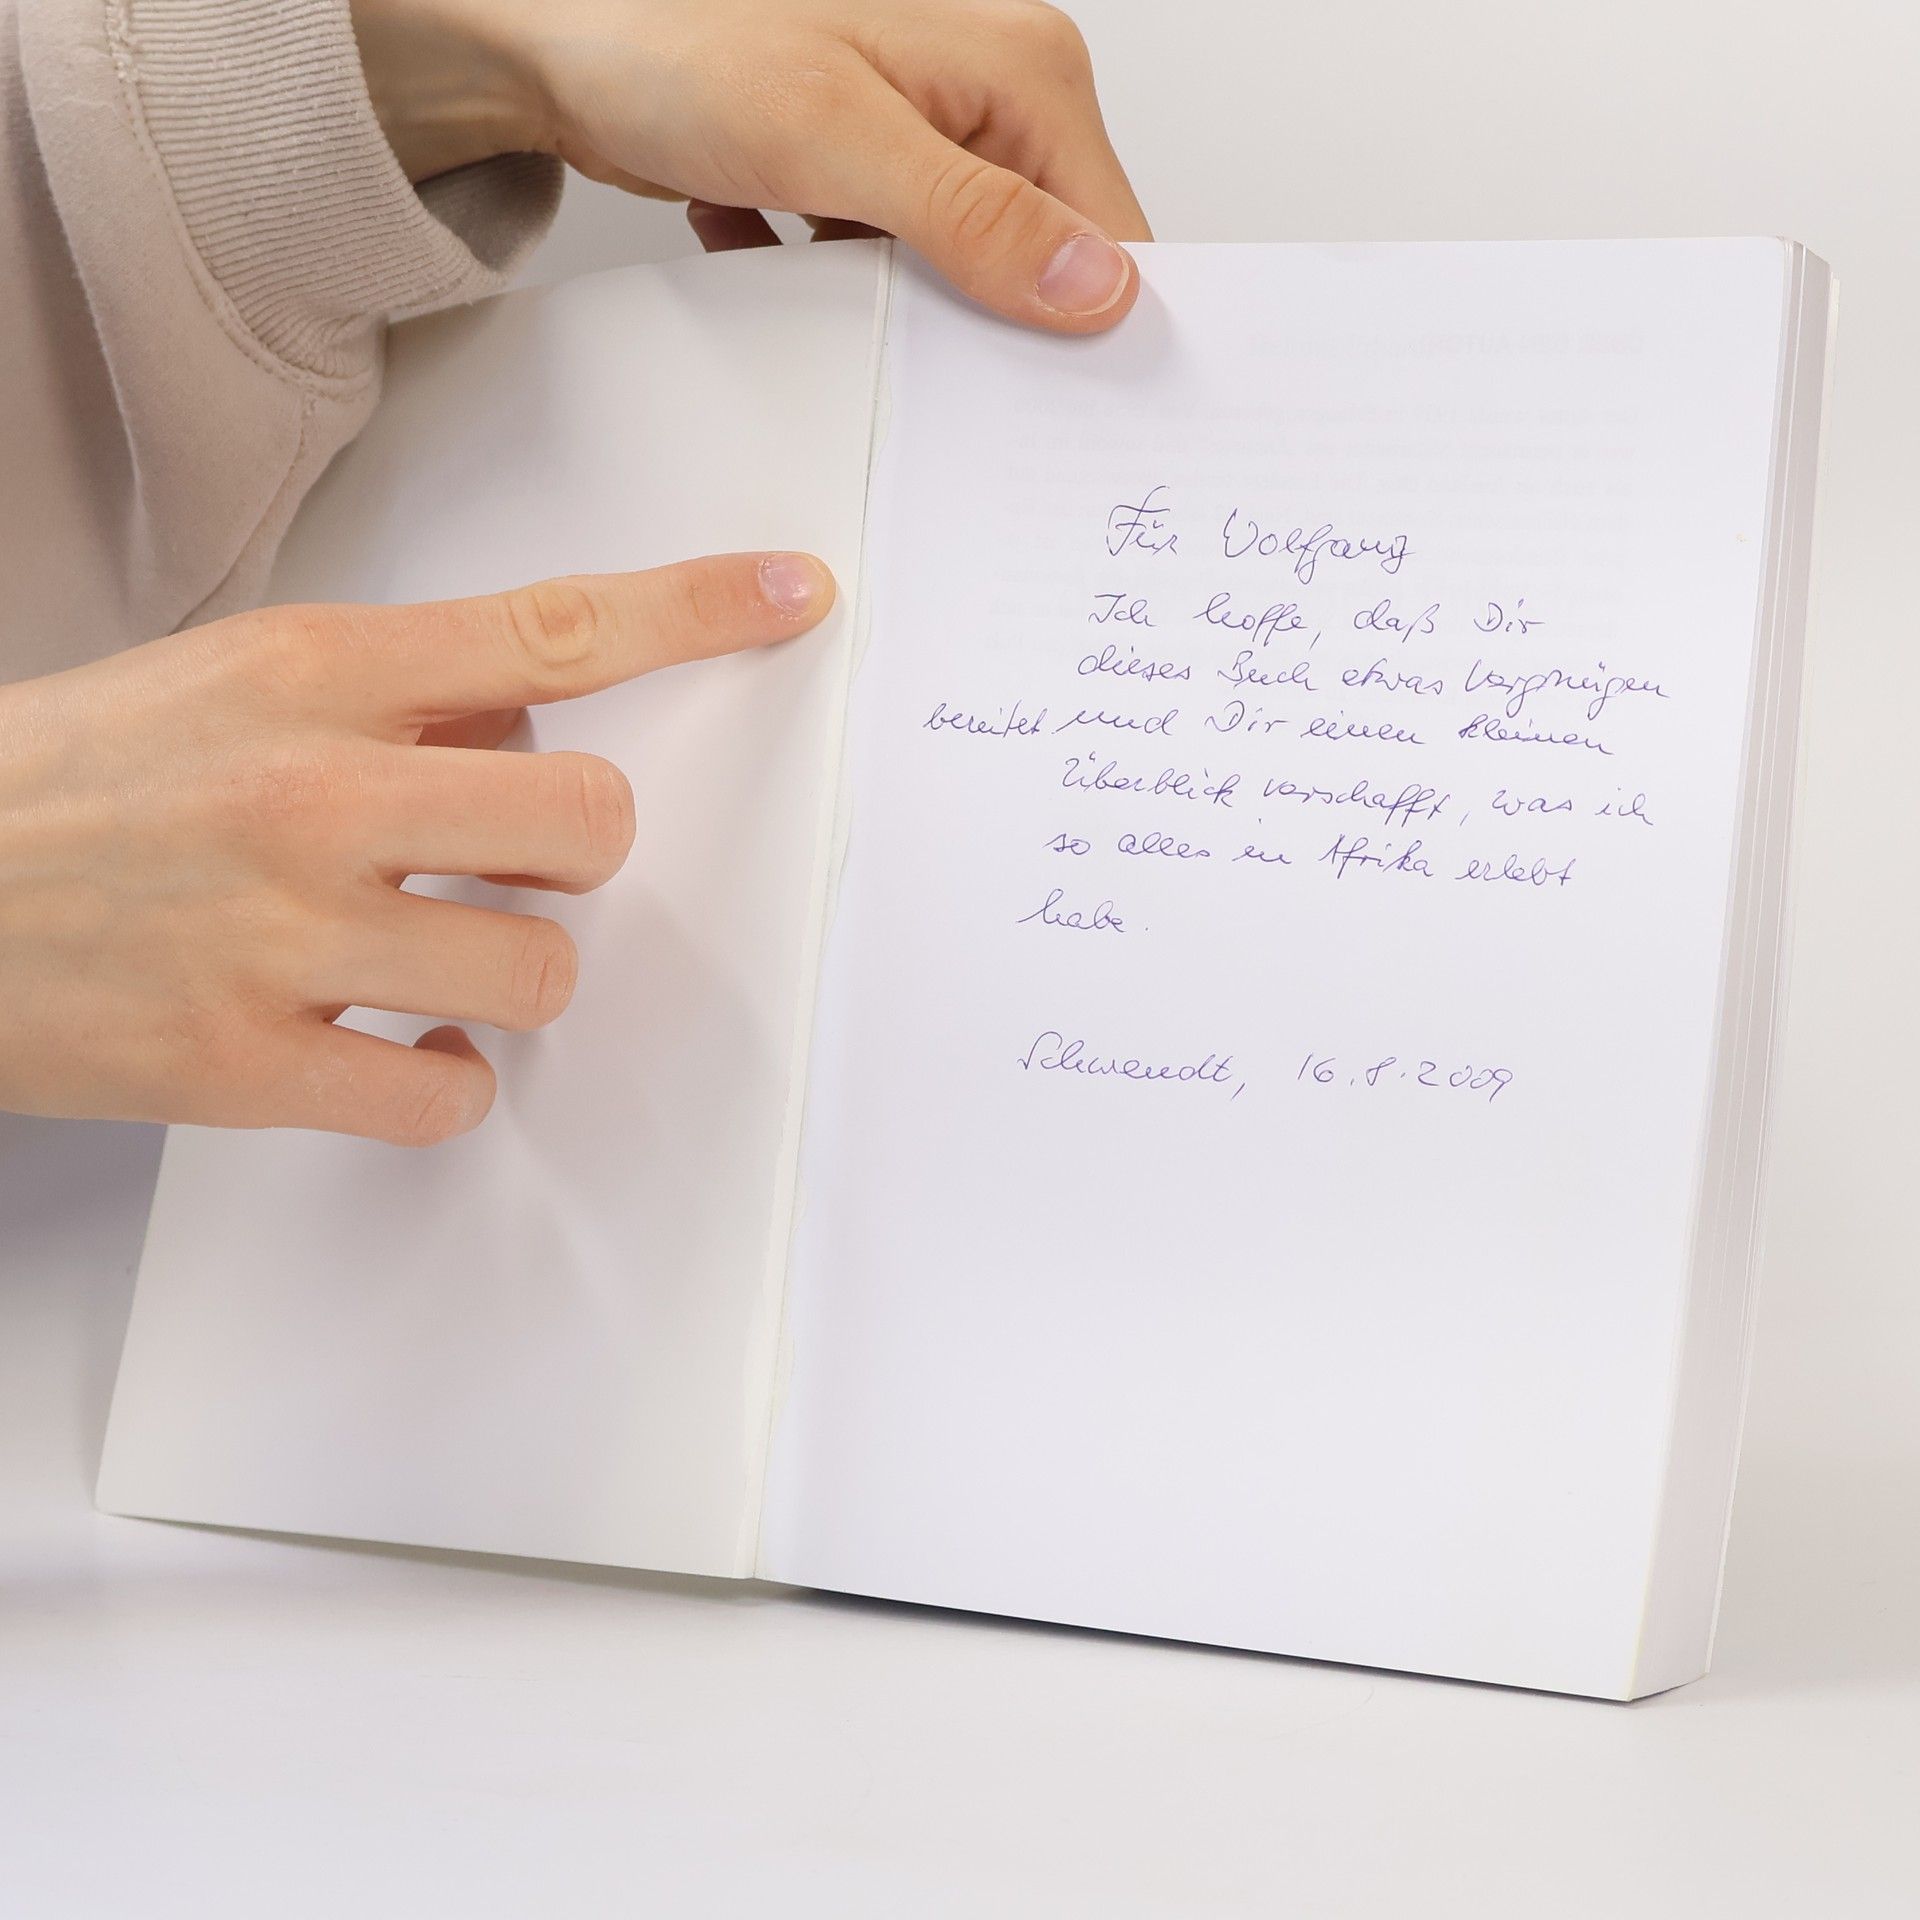 Für Wolfgang
Ich hoffe, daß Dir
dieses Buch etwas Vergnügen
bereitet und Dir einen kleinen
Überblick verschafft, was ich
so alles in Afrika erlebt
habe.
Schwendt, 16.8.2009